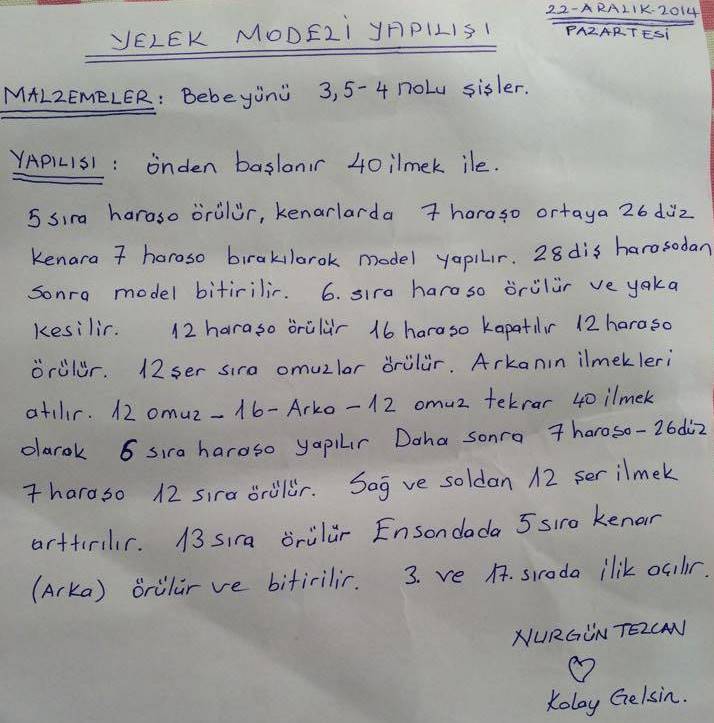 22-ARALIK-2014
PAZARTESİ
YELEK MODELİ YAPILIŞI
MALZEMELER: Bebeyünü 3,5-4 nolu şişler.
YAPILIŞI : önden başlanır 40 ilmek ile.
5 sıra haraşo örülür, kenarlarda 7 haraşo ortaya 26 düz
kenara 7 haroso bırakılarak model yapılır. 28 diş haraşodan
sonra model bitirilir. 6. sıra haraso örülür ve yaka
kesilir. 12 haraşo örülür 16 haraso kapatılır 12 haraso
örülür. 12 şer sıra omuzlar örülür. Arkanın ilmekleri
atılır. 12 omuz - 16 - Arka - 12 omuz tekrar 40 ilmek
olarak 6 sıra haraso yapılır Daha sonra 7 haraşo - 26 düz
7 haraşo 12 sıra örülür. Sağ ve soldan 12 şer ilmek
arttırılır. 13 sıra örülür Ensondada 5 sıra kenar
(Arka) örülür ve bitirilir. 3. ve 17. sırada ilik açılır.
NURGÜN TEZCAN
♡
Kolay Gelsin.